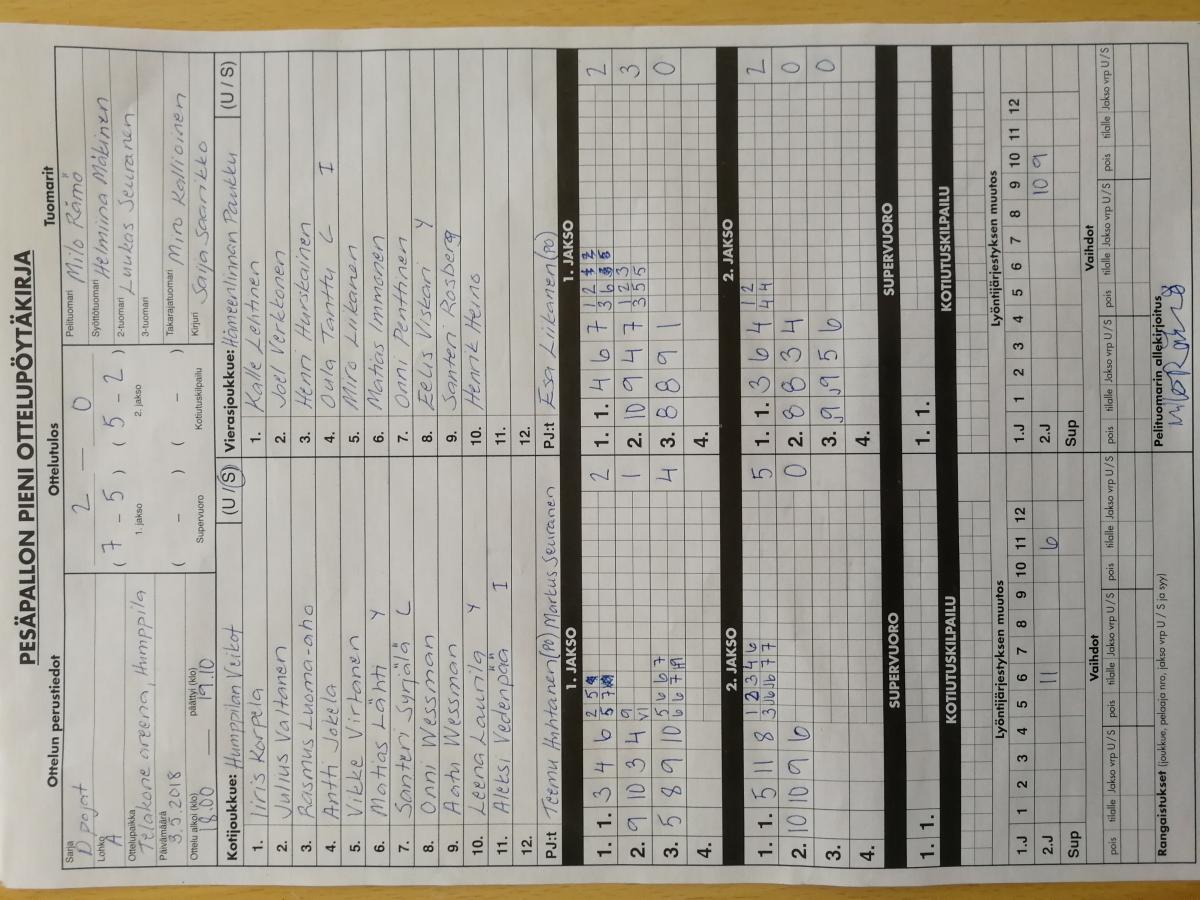 PESÄPALLON PIENI OTTELUPÖYTÄKIRJA
Ottelun perustiedot
Ottelutulos
Tuomarit
Sarja D pojat
Lohko A
Ottelupaikka Telakone areena, Humppila
Päivämäärä 3.5.2018
Ottelu alkoi (klo) 18.00 päättyi (klo) 19.10
2 – 0
( 7 – 5 ) ( 5 – 2 )
1. jakso 2. jakso
( – ) ( – )
Supervuoro Kotiutuskilpailu
Pelituomari Milo Rämö
Syöttötuomari Helmiina Mäkinen
2-tuomari Luukas Seuranen
3-tuomari
Takarajatuomari Miro Kallioinen
Kirjuri Saija Saarikko
Kotijoukkue: Humppilan Veikot (U / S)
1. Iiris Korpela
2. Julius Valtanen
3. Rasmus Luoma-aho
4. Antti Jokela
5. Vikke Virtanen
6. Matias Lähti Y
7. Santeri Syrjälä L
8. Onni Wessman
9. Aatu Wessman
10. Leena Laurila Y
11. Aleksi Vedenpää I
12.
PJ:t Teemu Huhtanen (PO) Markus Seuranen
Vierasjoukkue: Hämeenlinnan Paukku (U / S)
1. Kalle Lehtinen
2. Joel Verkonen
3. Henri Hurskainen
4. Oula Tanttu L I
5. Miro Liikanen
6. Matias Immonen
7. Onni Penttinen
8. Eelis Viskari Y
9. Santeri Rosberg
10. Henrik Heino
11.
12.
PJ:t Esa Liikanen (PO)
1. JAKSO
1. 1. 3 4 6 2
2. 9 10 3 4 1
3. 5 8 9 10 4
4.
1. JAKSO
1. 1. 4 6 7 2
2. 10 9 4 7 3
3. 8 8 9 1 0
4.
2. JAKSO
1. 1. 5 11 8 5
2. 10 10 9 6 0
3.
4.
2. JAKSO
1. 1. 3 6 4 2
2. 8 8 3 4 0
3. 9 9 5 6 0
4.
SUPERVUORO
1. 1.
SUPERVUORO
1. 1.
KOTIUTUSKILPAILU
KOTIUTUSKILPAILU
Lyöntijärjestyksen muutos
1.J 1 2 3 4 5 6 7 8 9 10 11 12
2.J 11 6
Sup
Lyöntijärjestyksen muutos
1.J 1 2 3 4 5 6 7 8 9 10 11 12
2.J 10 9
Sup
Vaihdot
pois tilalle Jakso vrp U / S pois tilalle Jakso vrp U / S pois tilalle Jakso vrp U / S
Vaihdot
pois tilalle Jakso vrp U / S pois tilalle Jakso vrp U / S pois tilalle Jakso vrp U / S
Rangaistukset (joukkue, pelaaja nro, jakso vrp U / S ja syy)
Pelituomarin allekirjoitus